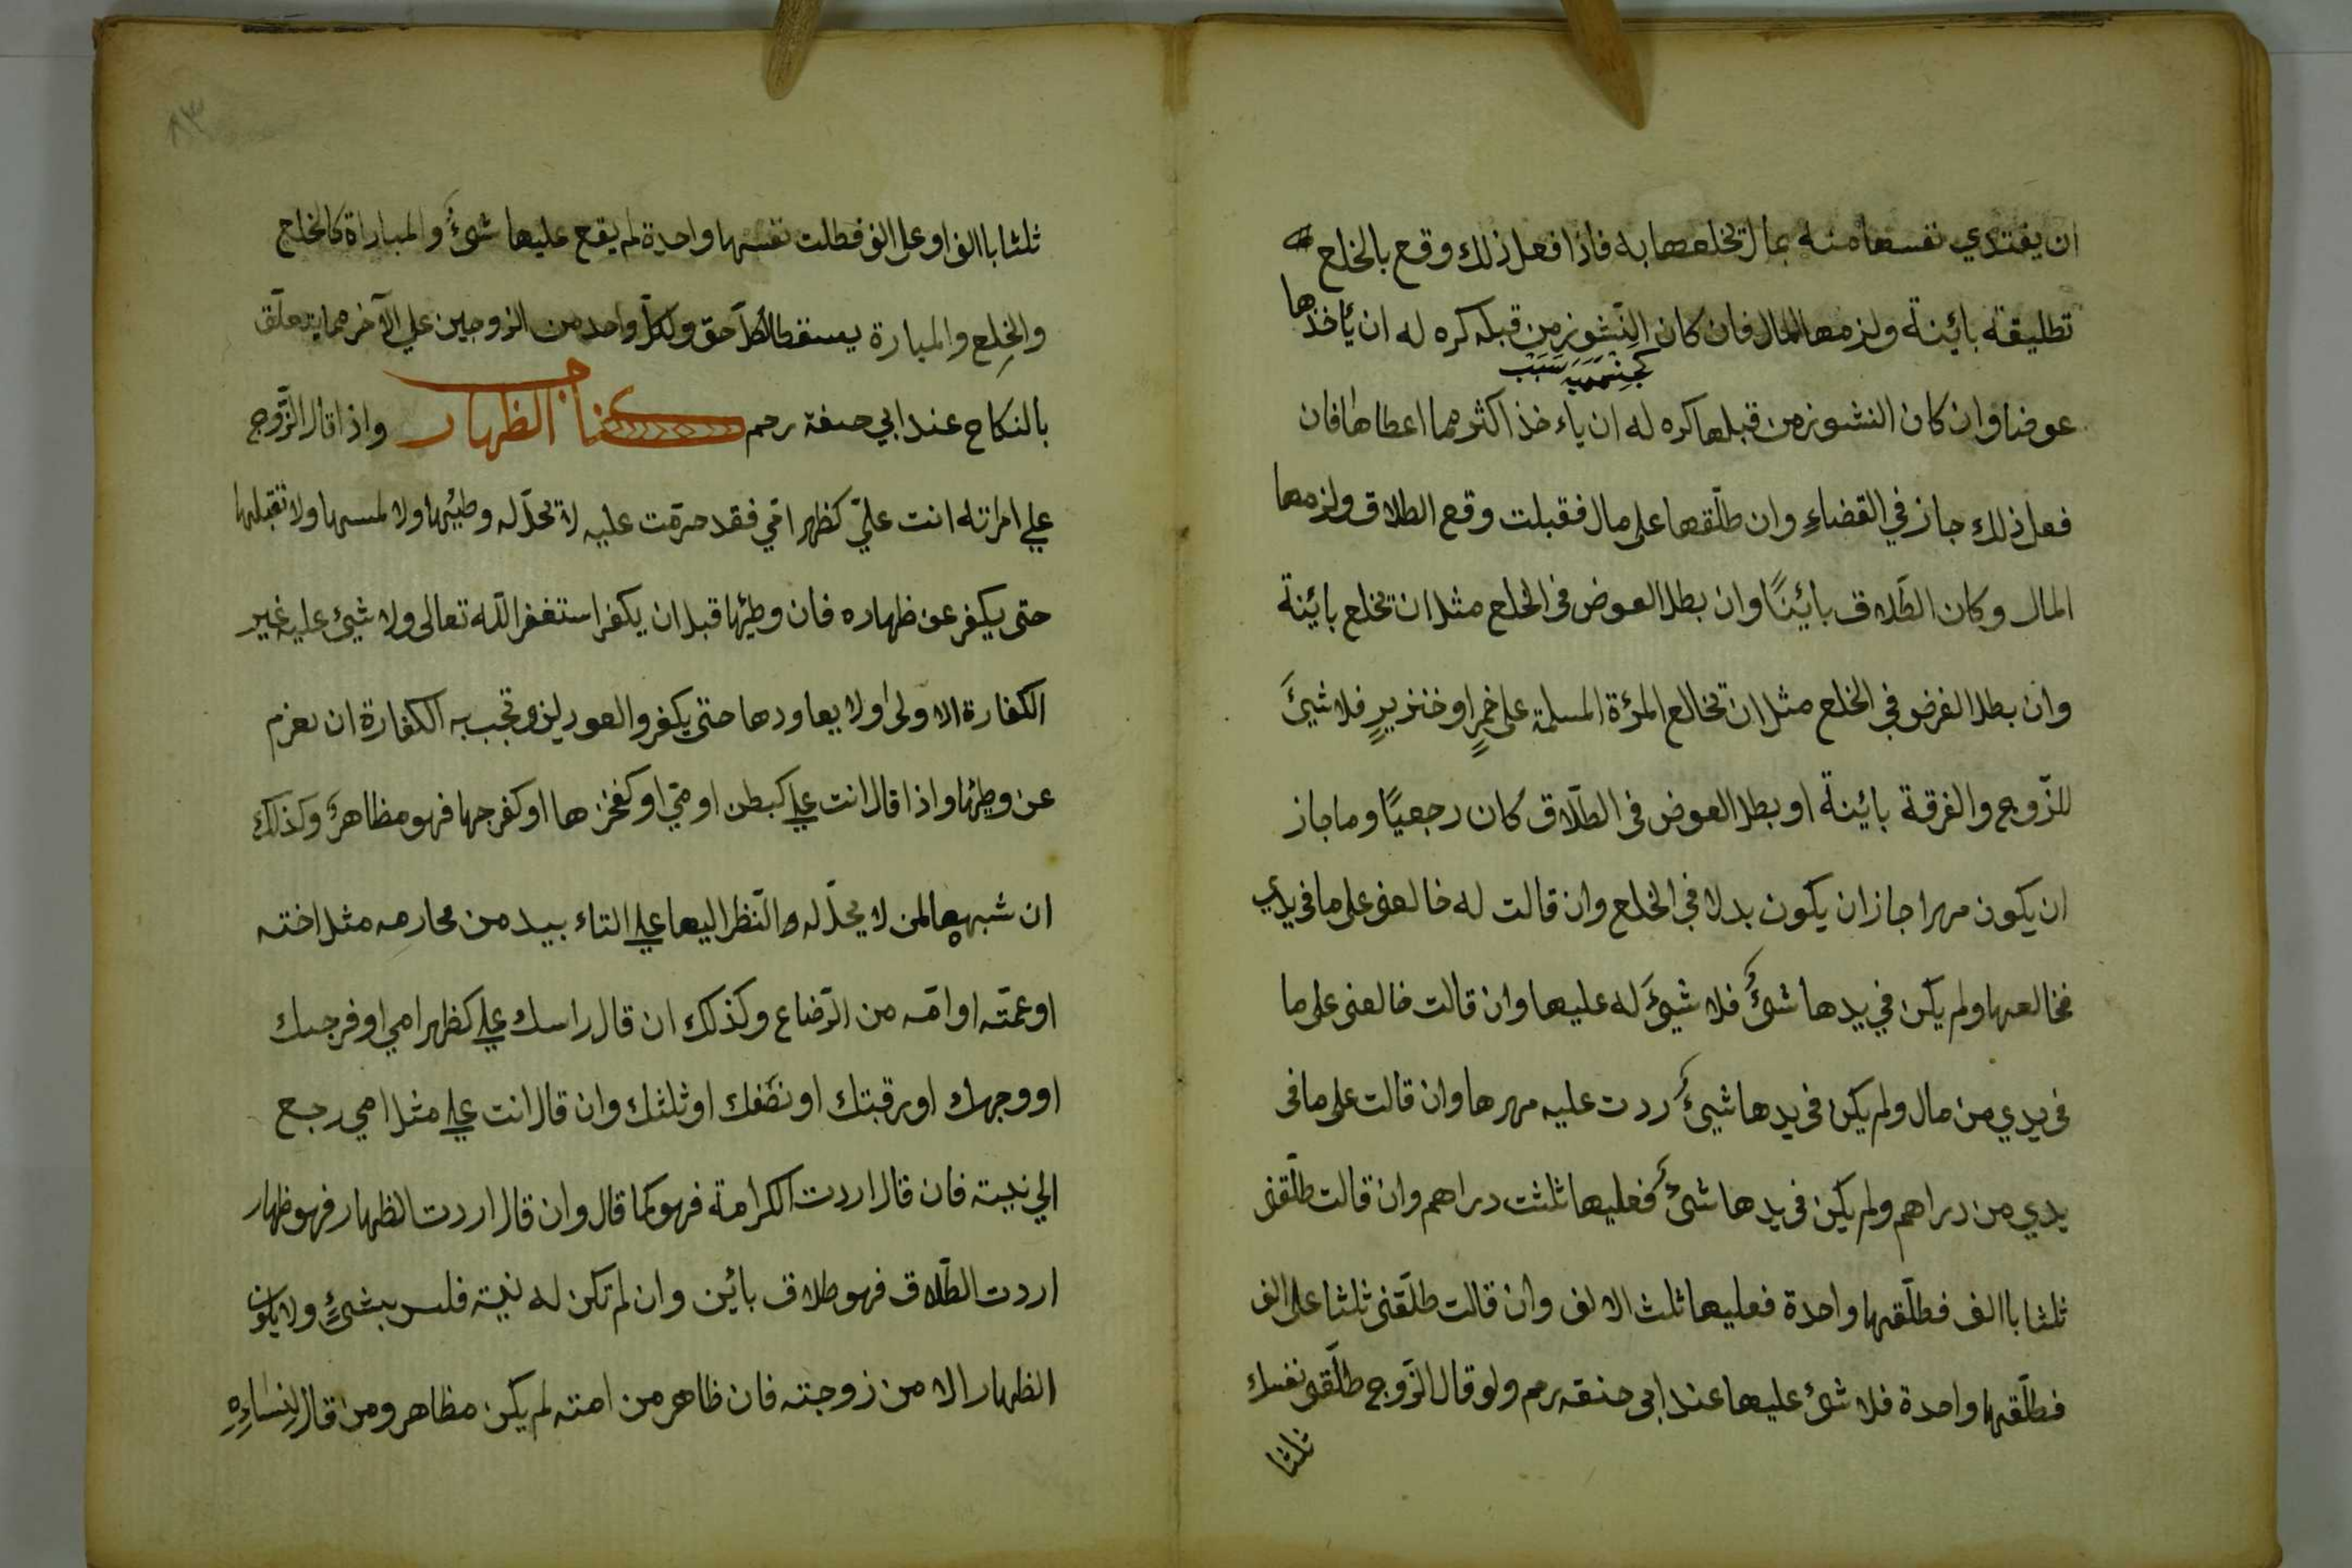 ان يفتدي نفسها منه بمال تخلعها به فاذا فعل ذلك وقع بالخلع
تطليقة بائينة ولزمها المال فان كان النشوز من قبله كره له ان يأخذها
عوضا وان كان النشوز من قبلها كره له ان ياءخذ اكثر مما اعطاها فان
فعل ذلك جاز في القضاء وان طلّقها على مال فقبلت وقع الطلاق ولزمها
المال وكان الطّلاق بائينًا وان بطل العوض في الخلع مثل ان تخلع بائينة
وان بطل الفرض في الخلع مثل ان تخالع المرؤة المسلمة على خمرٍ او خنزيرٍ فلا شيئَ
للزّوج والفرقة بائينة او بطل العوض في الطّلاق كان رجعيًا وما جاز
ان يكون مهرا جاز ان يكون بدلا في الخلع وان قالت له خالعنى على ما في يدي
فخالعها ولم يكن في يدها شئُ فلا شيئَ له عليها وان قالت خالعنى على ما
في يدي من مال ولم يكن في يدها شيئُ ردت عليه مهرها وان قالت على ما في
يدي من دراهم ولم يكن في يدها شئُ فعليها ثلثت دراهم وان قالت طلّقنى
ثلثا باالف فطلّقها واحدة فعليها ثلث الالف وان قالت طلّقنى ثلثا على الف
فطلّقها واحدة فلا شئ عليها عند ابى حنفه رحم ولو قال الزّوج طلّقى نفسك
ثلثا
٨٣
ثلثا باالف او على الف فطلت نفسها واحدة لم يقع عليها شئُ والمباراة كالخلع
والخلع والمبارة يسقطا لكلّ حق ولكلّ واحد من الزوجين على الآخر مما يتعلّق
بالنكاح عند ابي حنفة رحم كتاب الظهار واذا قال الزّوج
على امراته انت عليّ كظهر امّي فقد حرّمت عليه لا تحلّ له وطيئها ولا لمسها ولا تقبلها
حتى يكفر عن ظهاره فان وطيئها قبل ان يكفر استغفر اللّه تعالى ولا شيئ عليه غير
الكفارة الاولى ولا يعاودها حتى يكفر والعود لزى تجب به الكفارة ان يعزم
عن وطيئها واذا قال انت علي كبطن اومّي او كفخزها او كفرجها فهو مظاهرٌ وكذلك
ان شبهها لمن لا يحلّ له والنّظر اليها على التاءبيد من محارمه مثل اخته
او عمّته او امّه من الرّضاع وكذلك ان قال راسك علي كظهر امي او فرجك
او وجهك او رقبتك او نصفك او ثلثك وان قال انت علي مثل امي رجع
الي نيته فان قال اردت الكرامة فهو كما قال وان قال اردت الظهار فهو ظهار
اردت الطّلاق فهو طلاق بائين وان لم تكن له نيّة فلس بشئٍ ولا يكون
الظهار الا من زوجته فان ظاهر من امته لم يكن مظاهر ومن قال لنساءِهِ